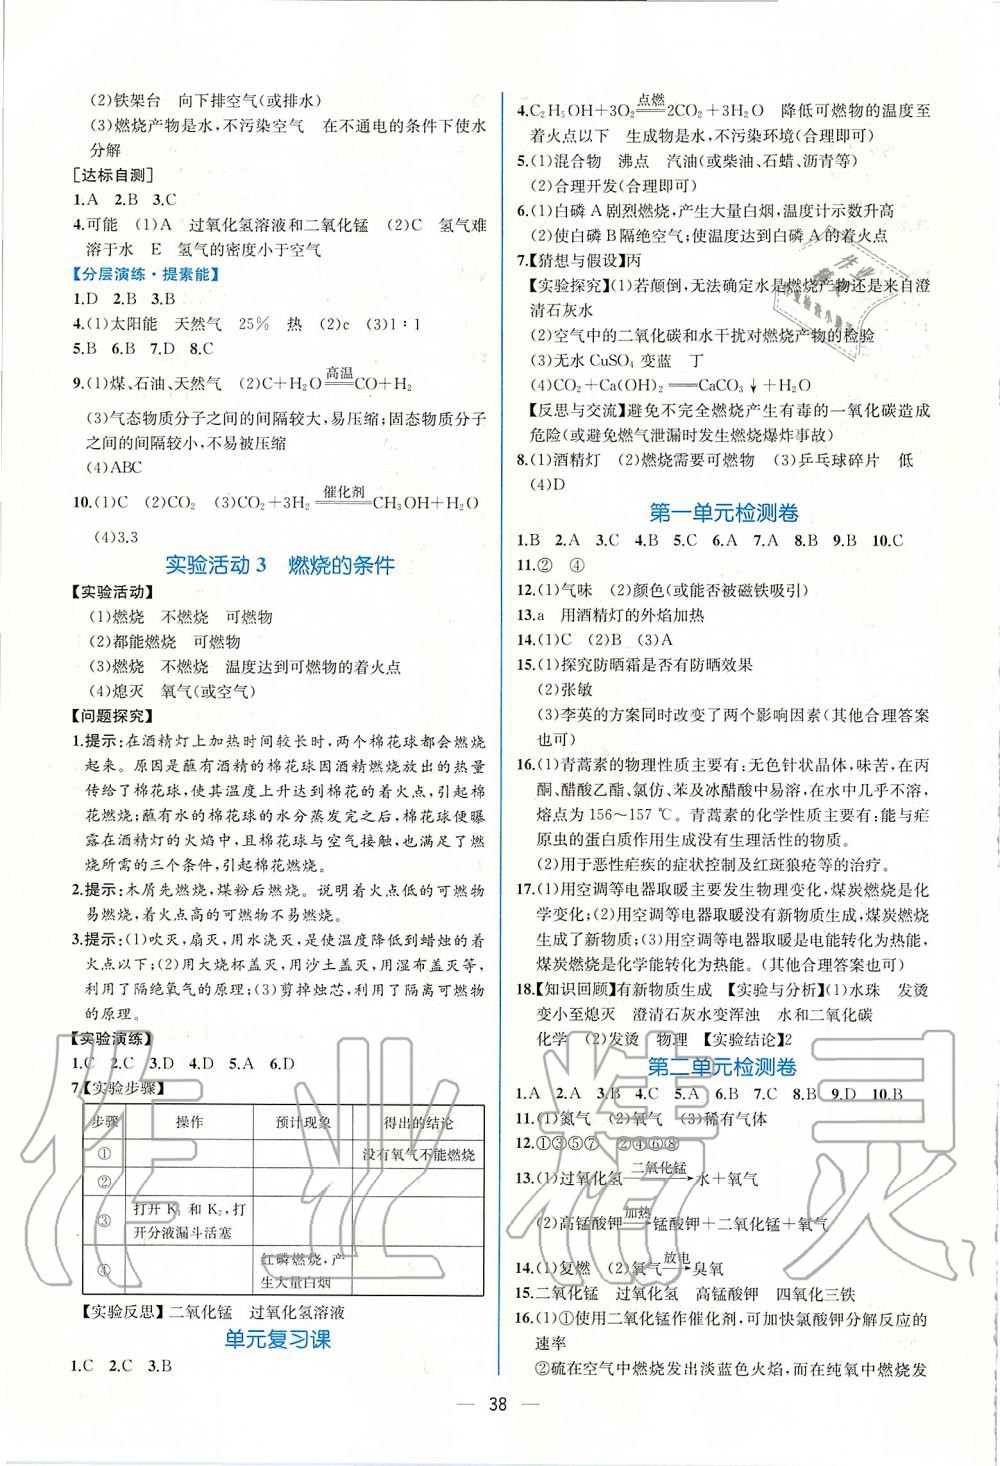 (2)铁架台　向下排空气(或排水)
(3)燃烧产物是水,不污染空气　在不通电的条件下使水
分解
[达标自测]
1.A　2.B　3.C
4.可能　(1)A　过氧化氢溶液和二氧化锰　(2)C　氢气难
溶于水　E　氢气的密度小于空气
【分层演练·提素能】
1.D　2.B　3.B
4.(1)太阳能　天然气　25%　热　(2)c　(3)1∶1
5.B　6.B　7.D　8.C
9.(1)煤、石油、天然气　(2)C+H₂O=高温=CO+H₂
(3)气态物质分子之间的间隔较大,易压缩;固态物质分子
之间的间隔较小,不易被压缩
(4)ABC
10.(1)C　(2)CO₂　(3)CO₂+3H₂=催化剂=CH₃OH+H₂O
(4)3.3
实验活动3　燃烧的条件
【实验活动】
(1)燃烧　不燃烧　可燃物
(2)都能燃烧　可燃物
(3)燃烧　不燃烧　温度达到可燃物的着火点
(4)熄灭　氧气(或空气)
【问题探究】
1.提示:在酒精灯上加热时间较长时,两个棉花球都会燃烧
起来。原因是蘸有酒精的棉花球因酒精燃烧放出的热量
传给了棉花球,使其温度上升达到棉花的着火点,引起棉
花燃烧;蘸有水的棉花球的水分蒸发完之后,棉花球便曝
露在酒精灯的火焰中,且棉花球与空气接触,也满足了燃
烧所需的三个条件,引起棉花燃烧。
2.提示:木屑先燃烧,煤粉后燃烧。说明着火点低的可燃物
易燃烧,着火点高的可燃物不易燃烧。
3.提示:(1)吹灭,扇灭,用水浇灭,是使温度降低到蜡烛的着
火点以下;(2)用大烧杯盖灭,用沙土盖灭,用湿布盖灭等,
利用了隔绝氧气的原理;(3)剪掉烛芯,利用了隔离可燃物
的原理。
【实验演练】
1.C　2.C　3.D　4.D　5.A　6.D
7.【实验步骤】
步骤　操作　预计现象　得出的结论
①　没有氧气不能燃烧
②
③　打开 K₁ 和 K₂,打
开分液漏斗活塞
④　红磷燃烧,产
生大量白烟
【实验反思】二氧化锰　过氧化氢溶液
单元复习课
1.C　2.C　3.B
4.C₂H₅OH+3O₂=点燃=2CO₂+3H₂O　降低可燃物的温度至
着火点以下　生成物是水,不污染环境(合理即可)
5.(1)混合物　沸点　汽油(或柴油、石蜡、沥青等)
(2)合理开发(合理即可)
6.(1)白磷A剧烈燃烧,产生大量白烟,温度计示数升高
(2)使白磷B隔绝空气;使温度达到白磷A的着火点
7.【猜想与假设】丙
【实验探究】(1)若颠倒,无法确定水是燃烧产物还是来自澄
清石灰水
(2)空气中的二氧化碳和水干扰对燃烧产物的检验
(3)无水CuSO₄变蓝　丁
(4)CO₂+Ca(OH)₂══CaCO₃↓+H₂O
【反思与交流】避免不完全燃烧产生有毒的一氧化碳造成
危险(或避免燃气泄漏时发生燃烧爆炸事故)
8.(1)酒精灯　(2)燃烧需要可燃物　(3)乒乓球碎片　低
(4)D
第一单元检测卷
1.B　2.A　3.C　4.B　5.C　6.A　7.A　8.B　9.B　10.C
11.②　④
12.(1)气味　(2)颜色(或能否被磁铁吸引)
13.a　用酒精灯的外焰加热
14.(1)C　(2)B　(3)A
15.(1)探究防晒霜是否有防晒效果
(2)张敏
(3)李英的方案同时改变了两个影响因素(其他合理答案
也可)
16.(1)青蒿素的物理性质主要有:无色针状晶体,味苦,在丙
酮、醋酸乙酯、氯仿、苯及冰醋酸中易溶,在水中几乎不溶,
熔点为156～157 ℃。青蒿素的化学性质主要有:能与疟
原虫的蛋白质作用生成没有生理活性的物质。
(2)用于恶性疟疾的症状控制及红斑狼疮等的治疗。
17.(1)用空调等电器取暖主要发生物理变化,煤炭燃烧是化
学变化;(2)用空调等电器取暖没有新物质生成,煤炭燃烧
生成了新物质;(3)用空调等电器取暖是电能转化为热能,
煤炭燃烧是化学能转化为热能。(其他合理答案也可)
18.【知识回顾】有新物质生成　【实验与分析】(1)水珠　发烫
变小至熄灭　澄清石灰水变浑浊　水和二氧化碳
化学　(2)发烫　物理　【实验结论】2
第二单元检测卷
1.A　2.A　3.B　4.C　5.A　6.B　7.C　8.B　9.D　10.B
11.(1)氮气　(2)氧气　(3)稀有气体
12.①③⑤⑦　②④⑥⑧
13.(1)过氧化氢—二氧化锰→水+氧气
(2)高锰酸钾—加热→锰酸钾+二氧化锰+氧气
14.(1)复燃　(2)氧气—放电→臭氧
15.二氧化锰　过氧化氢　高锰酸钾　四氧化三铁
16.(1)①使用二氧化锰作催化剂,可加快氯酸钾分解反应的
速率
②硫在空气中燃烧发出淡蓝色火焰,而在纯氧中燃烧发
— 38 —
作业精灵